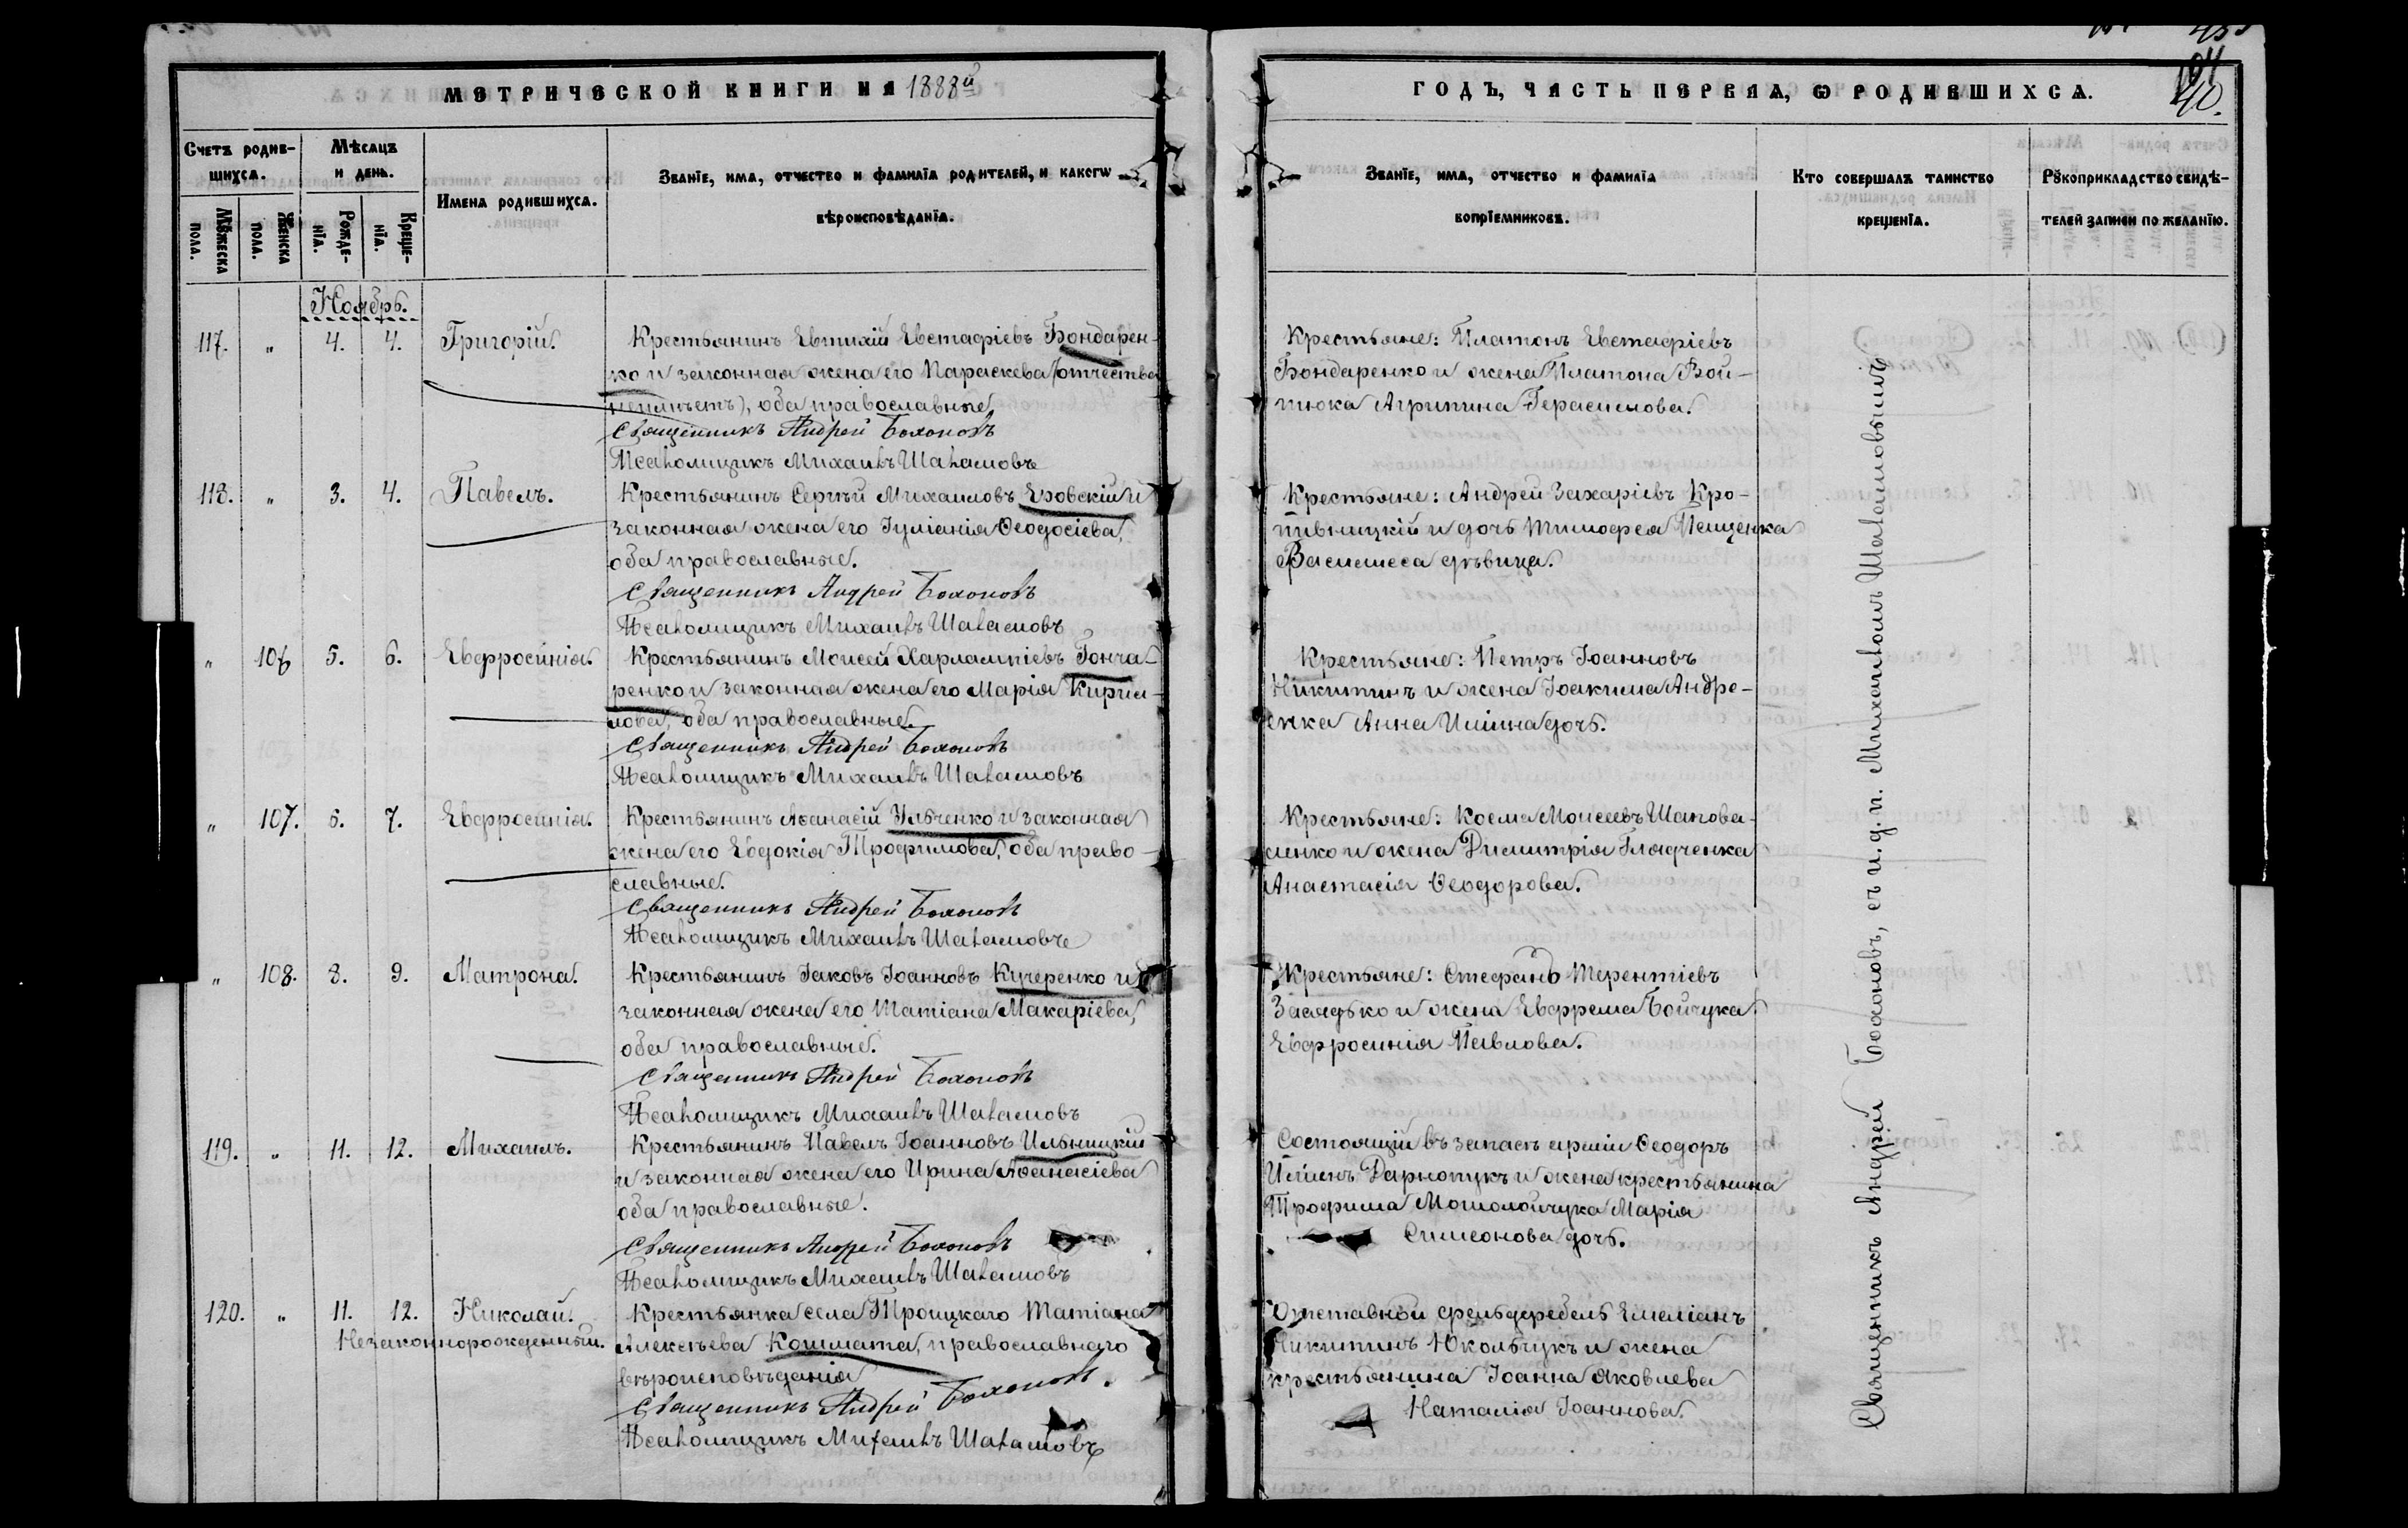 МЕТРИЧЕСКОЙ КНИГИ НА 1888й
Счетъ родив-
шихся.
Мѣсяцъ
и день.
Имена родившихся.
Званїе, имя, отчество и фамилїя родителей, и какогѡ
вѣроисповѣданїя.
Мꙋжеска
пола.
Женска
пола.
Рожде-
нїя.
Креще-
нїя.
Ноябрь.
117. „ 4. 4. Григорій. Крестьянинъ Евтихій Евстафіевъ Бондарен-
ко и законная жена его Параскева (отчества
неимѣетъ), оба православные.
Священникъ Андрей Бохоновъ
Псаломщикъ Михаилъ Шаламовъ
118. „ 3. 4. Павелъ. Крестьянинъ Сергѣй Михаиловъ Еровскій и
законная жена его Іуліанія Ѳеодосіева,
оба православные.
Священникъ Андрей Бохоновъ
Псаломщикъ Михаилъ Шаламовъ
„ 106 5. 6. Евфросинія. Крестьянинъ Моисей Харлампіевъ Гонча-
ренко и законная жена его Марія Кирил-
лова, оба православные.
Священникъ Андрей Бохоновъ
Псаломщикъ Михаилъ Шаламовъ
„ 107. 6. 7. Евфросинія. Крестьянинъ Аѳанасій Ильченко и законная
жена его Евдокія Трофимова, оба право-
славные.
Священникъ Андрей Бохоновъ
Псаломщикъ Михаилъ Шаламовъ
„ 108. 8. 9. Матрона. Крестьянинъ Іаковъ Іоанновъ Кучеренко и
законная жена его Татіана Макаріева,
оба православные.
Священникъ Андрей Бохоновъ
Псаломщикъ Михаилъ Шаламовъ
119. „ 11. 12. Михаилъ. Крестьянинъ Павелъ Іоанновъ Ильницкій
и законная жена его Ирина Аѳанасіева
оба православные.
Священникъ Андрей Бохоновъ
Псаломщикъ Михаилъ Шаламовъ
120. „ 11. 12. Николай. Крестьянка села Троицкаго Татіана
Незаконнорожденный. Алексѣева Кошмата, православнаго
вѣроисповѣданія
Священникъ Андрей Бохоновъ.
Псаломщикъ Михаилъ Шаламовъ
104
40.
ГОДЪ, ЧАСТЬ ПЕРВАЯ, Ѡ РОДИВШИХСЯ.
Званїе, имя, отчество и фамилїя
воспрїемниковъ.
Кто совершалъ таинство
крещенїя.
Рꙋкоприкладство свидѣ-
телей записи по желанїю.
Крестьяне: Платонъ Евстафіевъ
Бондаренко и жена Платона Вой-
тюка Агрипина Герасимова.
Крестьяне: Андрей Захаріевъ Кро-
пивницкій и дочь Тимофея Пещенка
Васса девица.
Крестьяне: Петръ Іоанновъ
Никитинъ и жена Іоакима Андре-
енка Анна Иліина дочь.
Крестьяне: Косма Моисеевъ Шапова-
ленко и жена Димитрія Гладченка
Анастасія Ѳеодорова.
Крестьяне: Стефанъ Терентіевъ
Заядько и жена Евфрема Бойчука
Евфросинія Павлова.
Состоящій въ запасѣ арміи Ѳеодоръ
Иліинъ Дарнопукъ и жена крестьянина
Трофима Мотолойчука Марія
Симеонова дочь.
Отставной фельдфебель Емеліанъ
Никитинъ Юкольчукъ и жена
крестьянина Іоанна Яковлева
Наталія Іоаннова.
Священникъ Андрей Бохоновъ, съ и. д. п. Михаиломъ Шаламовымъ